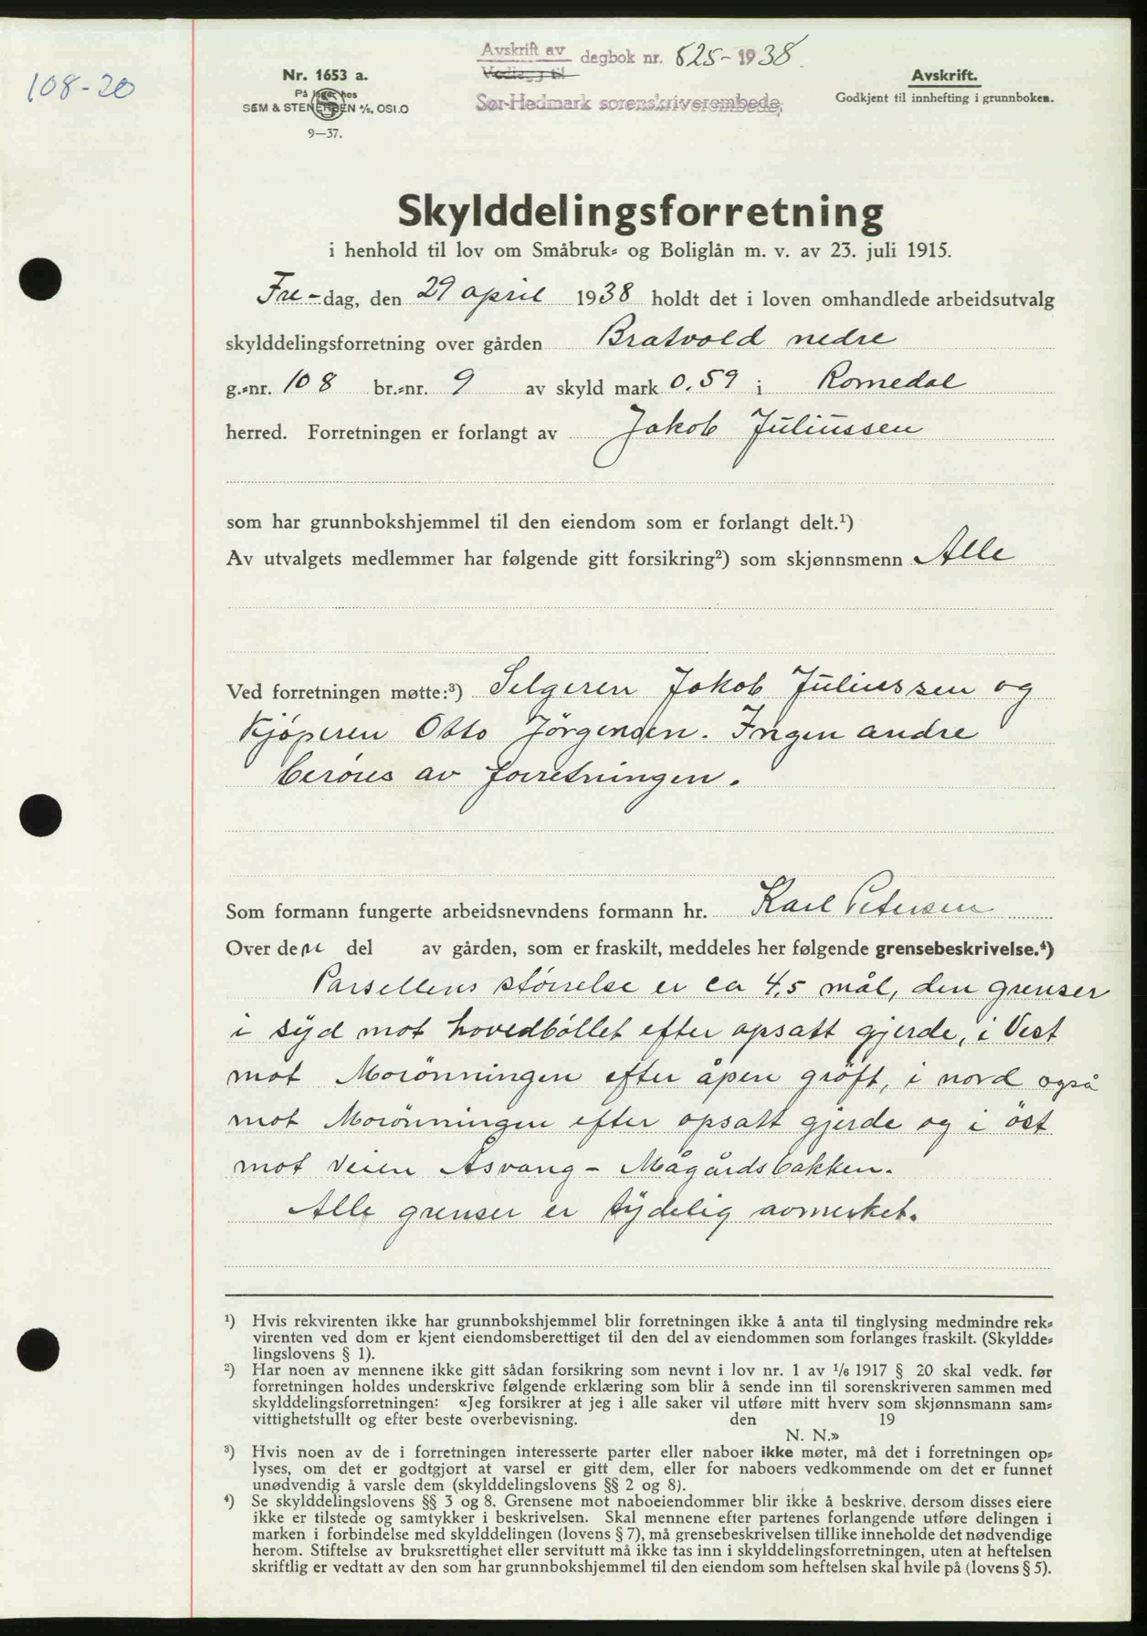 108-20
Avskrift av
Vedlegg til
dagbok nr. 525-1938.
Sør-Hedmark sorenskriverembede,
Nr. 1653 a.
På lager hos
SEM & STENERSEN A/S, OSLO
9—37.
Avskrift.
Godkjent til innhefting i grunnboken.
Skylddelingsforretning
i henhold til lov om Småbruk- og Boliglån m. v. av 23. juli 1915.
Fre-dag, den 29 april 1938 holdt det i loven omhandlede arbeidsutvalg
skylddelingsforretning over gården Bratvold nedre
g.-nr. 108 br.-nr. 9 av skyld mark 0.59 i Romedal
herred. Forretningen er forlangt av Jakob Juliussen
som har grunnbokshjemmel til den eiendom som er forlangt delt.¹)
Av utvalgets medlemmer har følgende gitt forsikring²) som skjønnsmenn Alle
Ved forretningen møtte:³) Selgeren Jakob Juliussen og
Kjøperen Otto Jørgensen. Ingen andre
berøres av forretningen.
Som formann fungerte arbeidsnevndens formann hr. Karl Petersen
Over den del av gården, som er fraskilt, meddeles her følgende grensebeskrivelse.⁴)
Parsellens størrelse er ca 4,5 mål, den grenser
i syd mot hovedbøllet efter opsatt gjerde, i Vest
mot Morønningen efter åpen grøft, i nord også
mot Morønningen efter opsatt gjerde og i öst
mot veien Åsvang - Mågårdsbakken.
Alle grenser er tydelig avmerket.
¹) Hvis rekvirenten ikke har grunnbokshjemmel blir forretningen ikke å anta til tinglysing medmindre rek-
virenten ved dom er kjent eiendomsberettiget til den del av eiendommen som forlanges fraskilt. (Skyldde-
lingslovens § 1).
²) Har noen av mennene ikke gitt sådan forsikring som nevnt i lov nr. 1 av 1/6 1917 § 20 skal vedk. før
forretningen holdes underskrive følgende erklæring som blir å sende inn til sorenskriveren sammen med
skylddelingsforretningen: «Jeg forsikrer at jeg i alle saker vil utføre mitt hverv som skjønnsmann sam-
vittighetsfullt og efter beste overbevisning. den 19
N. N.»
³) Hvis noen av de i forretningen interesserte parter eller naboer ikke møter, må det i forretningen op-
lyses, om det er godtgjort at varsel er gitt dem, eller for naboers vedkommende om det er funnet
unødvendig å varsle dem (skylddelingslovens §§ 2 og 8).
⁴) Se skylddelingslovens §§ 3 og 8. Grensene mot naboeiendommer blir ikke å beskrive, dersom disses eiere
ikke er tilstede og samtykker i beskrivelsen. Skal mennene efter partenes forlangende utføre delingen i
marken i forbindelse med skylddelingen (lovens § 7), må grensebeskrivelsen tillike inneholde det nødvendige
herom. Stiftelse av bruksrettighet eller servitutt må ikke tas inn i skylddelingsforretningen, uten at heftelsen
skriftlig er vedtatt av den som har grunnbokshjemmel til den eiendom som heftelsen skal hvile på (lovens § 5).